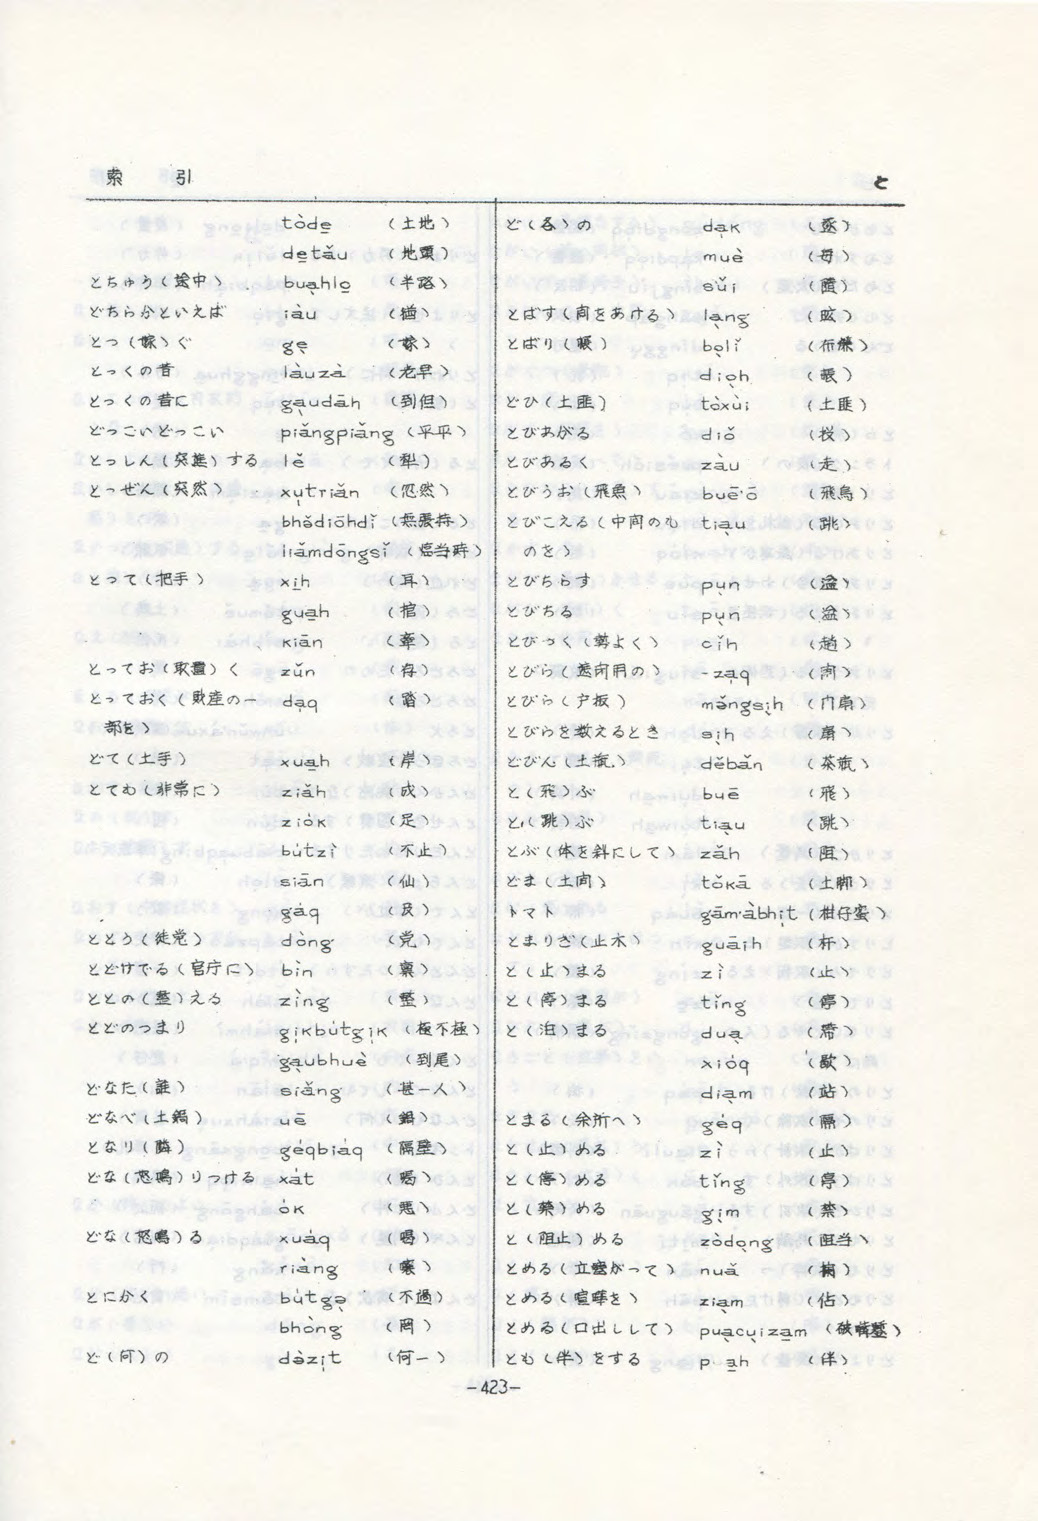 索 引 と
tòde̲ (土地)
de̲tǎu (地頭)
とちゅう(途中) bua̲hlo̲ (半路)
どちらかといえば iàu (猶)
とつ(嫁)ぐ gẹ (嫁)
とっくの昔 làuzà (老早)
とっくの昔に gạudāh (到但)
どっこいどっこい piǎngpiǎng (平平)
とっしん(突進)する lě (犁)
とつぜん(突然) xụtriǎn (忽然)
bhǒdiōhdǐ (無張持)
liǎmdōngsǐ (臨当時)
とって(把手) xi̲h (耳)
guạh (棺)
kiān (牽)
とってお(取置)く zǔn (存)
とっておく(財産の一 dạq (踏)
部を)
どて(土手) xua̲h (岸)
とても(非常に) ziǎh (成)
ziók (足)
bútzì (不止)
siān (仙)
gáq (及)
ととう(徒党) dòng (党)
とどけでる(官庁に) bìn (稟)
ととの(整)える zìng (整)
とどのつまり gịkbútgịk (極不極)
gạubhuè (到尾)
どなた(誰) siǎng (甚一人)
どなべ(土鍋) uē (鍋)
となり(隣) géqbiáq (隔壁)
どな(怒鳴)りつける xát (喝)
ók (悪)
どな(怒鳴)る xuáq (喝)
riàng (嚷)
とにかく bútgə̣ (不過)
bhòng (罔)
ど(何)の dǝ̀zịt (何一)
ど(各)の dạk (逐)
muè (毎)
sǔi (随)
とばす(間をあける) lạng
とばり(帳) bọlǐ (布簾)
diọh (帳)
どひ(土匪) tòxùi (土匪)
とびあがる diǒ
とびあるく zàu (走)
とびうお(飛魚) buē·ō (飛烏)
とびこえる(中間のも tiạu (跳)
のを)
とびちらす pụn (湓)
とびちる pụn (湓)
とびつく(勢よく) cǐh (趙)
とびら -zạq
とびら(戸板) mə̌ngsịh (门扇)
とびらを数えるとき sịh (扇)
どびん(土瓶) děbǎn (茶瓶)
と(飛)ぶ buē (飛)
と(跳)ぶ tiạu (跳)
とぶ(体を斜にして) zǎh
どま(土間) tǒkā (土脚)
トマト gām·àbhịt (柑仔蜜)
とまりぎ(止木) guāih (杆)
と(止)まる zì (止)
と(停)まる tǐng (停)
と(泊)まる duạ (滞)
xióq (歇)
diạm (站)
とまる(余所へ) géq (隔)
と(止)める zì (止)
と(停)める tǐng (停)
と(禁)める gịm (禁)
と(阻止)める zòdọng (阻当)
とめる(立塞がって) nuǎ (攔)
とめる(喧嘩を) ziạm (佔)
とめる(口出しして) puạcụiza̲m
とも(伴)をする pa̲h (伴)
-423-